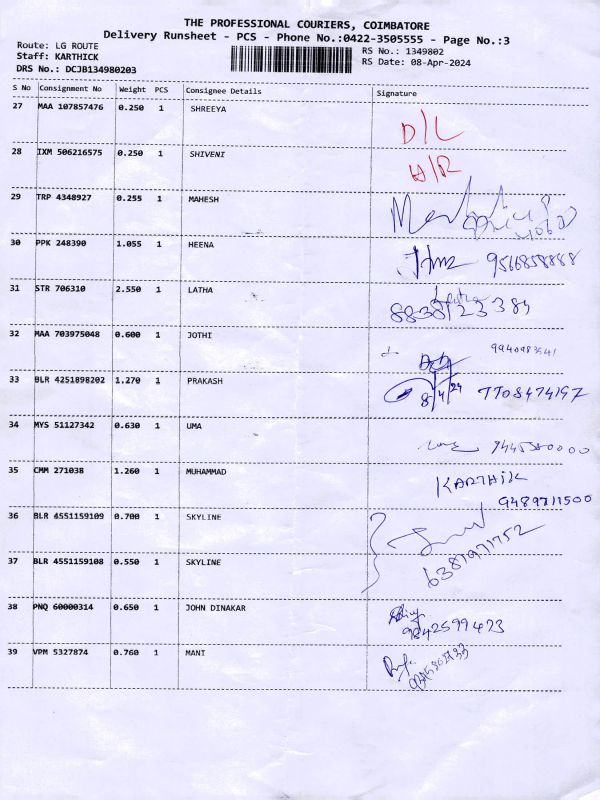 THE PROFESSIONAL COURIERS, COIMBATORE
Delivery Runsheet - PCS - Phone No.:0422-3505555 - Page No.:3
Route: LG ROUTE
RS No.: 1349802
Staff: KARTHICK
RS Date: 08-Apr-2024
DRS No.: DCJB134980203
S No Consignment No Weight PCS Consignee Details Signature
27 MAA 107857476 0.250 1 SHREEYA D/L
28 IXM 506216575 0.250 1 SHIVENI
29 TRP 4348927 0.255 1 MAHESH
30 PPK 248390 1.055 1 HEENA 9566858888
31 STR 706310 2.550 1 LATHA
32 MAA 703975048 0.600 1 JOTHI 9940983541
33 BLR 4251898202 1.270 1 PRAKASH 8/4/24 7708474197
34 MYS 51127342 0.630 1 UMA 9445380000
35 CMM 271038 1.260 1 MUHAMMAD KARTHIK
9489711500
36 BLR 4551159109 0.700 1 SKYLINE
6381971752
37 BLR 4551159108 0.550 1 SKYLINE
38 PNQ 60000314 0.650 1 JOHN DINAKAR
9842599473
39 VPM 5327874 0.760 1 MANI